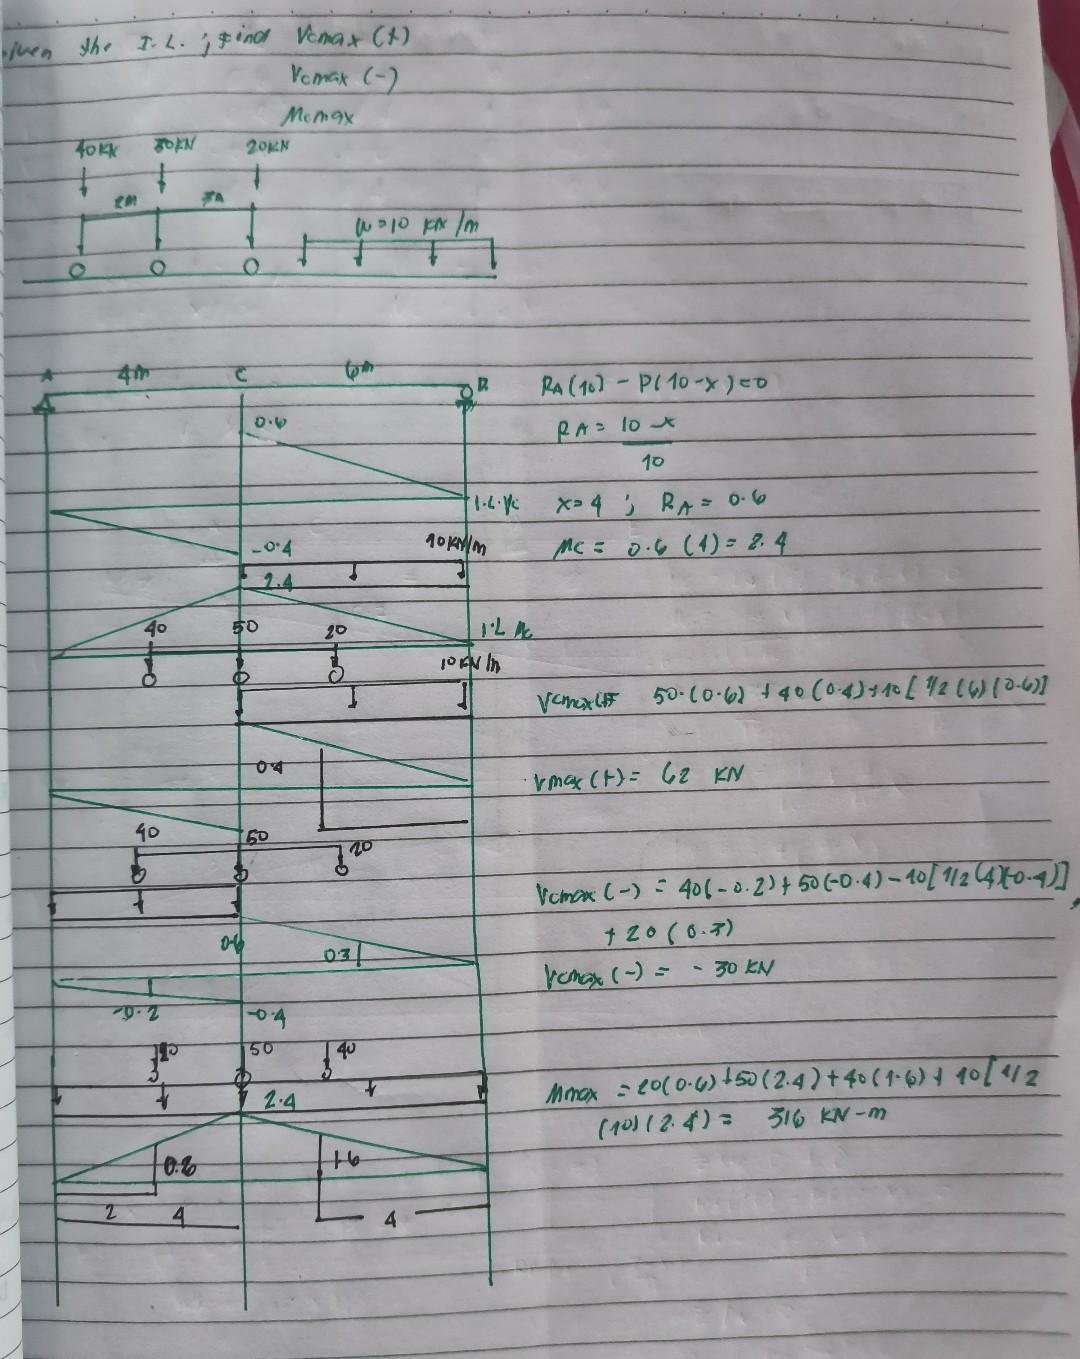 the I.L. ; find Vcmax (+)
Vcmax (-)
Mcmax
40KN 50KN 20KN
2M 3M
W=10 KN/m
A 4m C 6m B
RA(10) - P(10-x)=0
0.6
RA= 10-x
10
I.L.Vc x=4 ; RA = 0.6
-0.4 10KN/m Mc = 0.6 (4) = 2.4
2.4
40 50 20 I.L Mc
10KN/m
Vcmax(+) 50.(0.6) + 40(0.4)+10[1/2(6)(0.6)]
0.4 Vmax(+)= 62 KN
40 50 20
Vcmax(-) = 40(-0.2)+50(-0.4)-10[1/2(4)(-0.4)]
0.6 0.3 + 20(0.3)
Vcmax(-) = - 30 KN
-0.2 -0.4
50 40
2.4 Mmax = 20(0.6)+50(2.4)+40(1.6)+10[1/2
(10)(2.4)= 316 KN-m
1.6
2 4 4